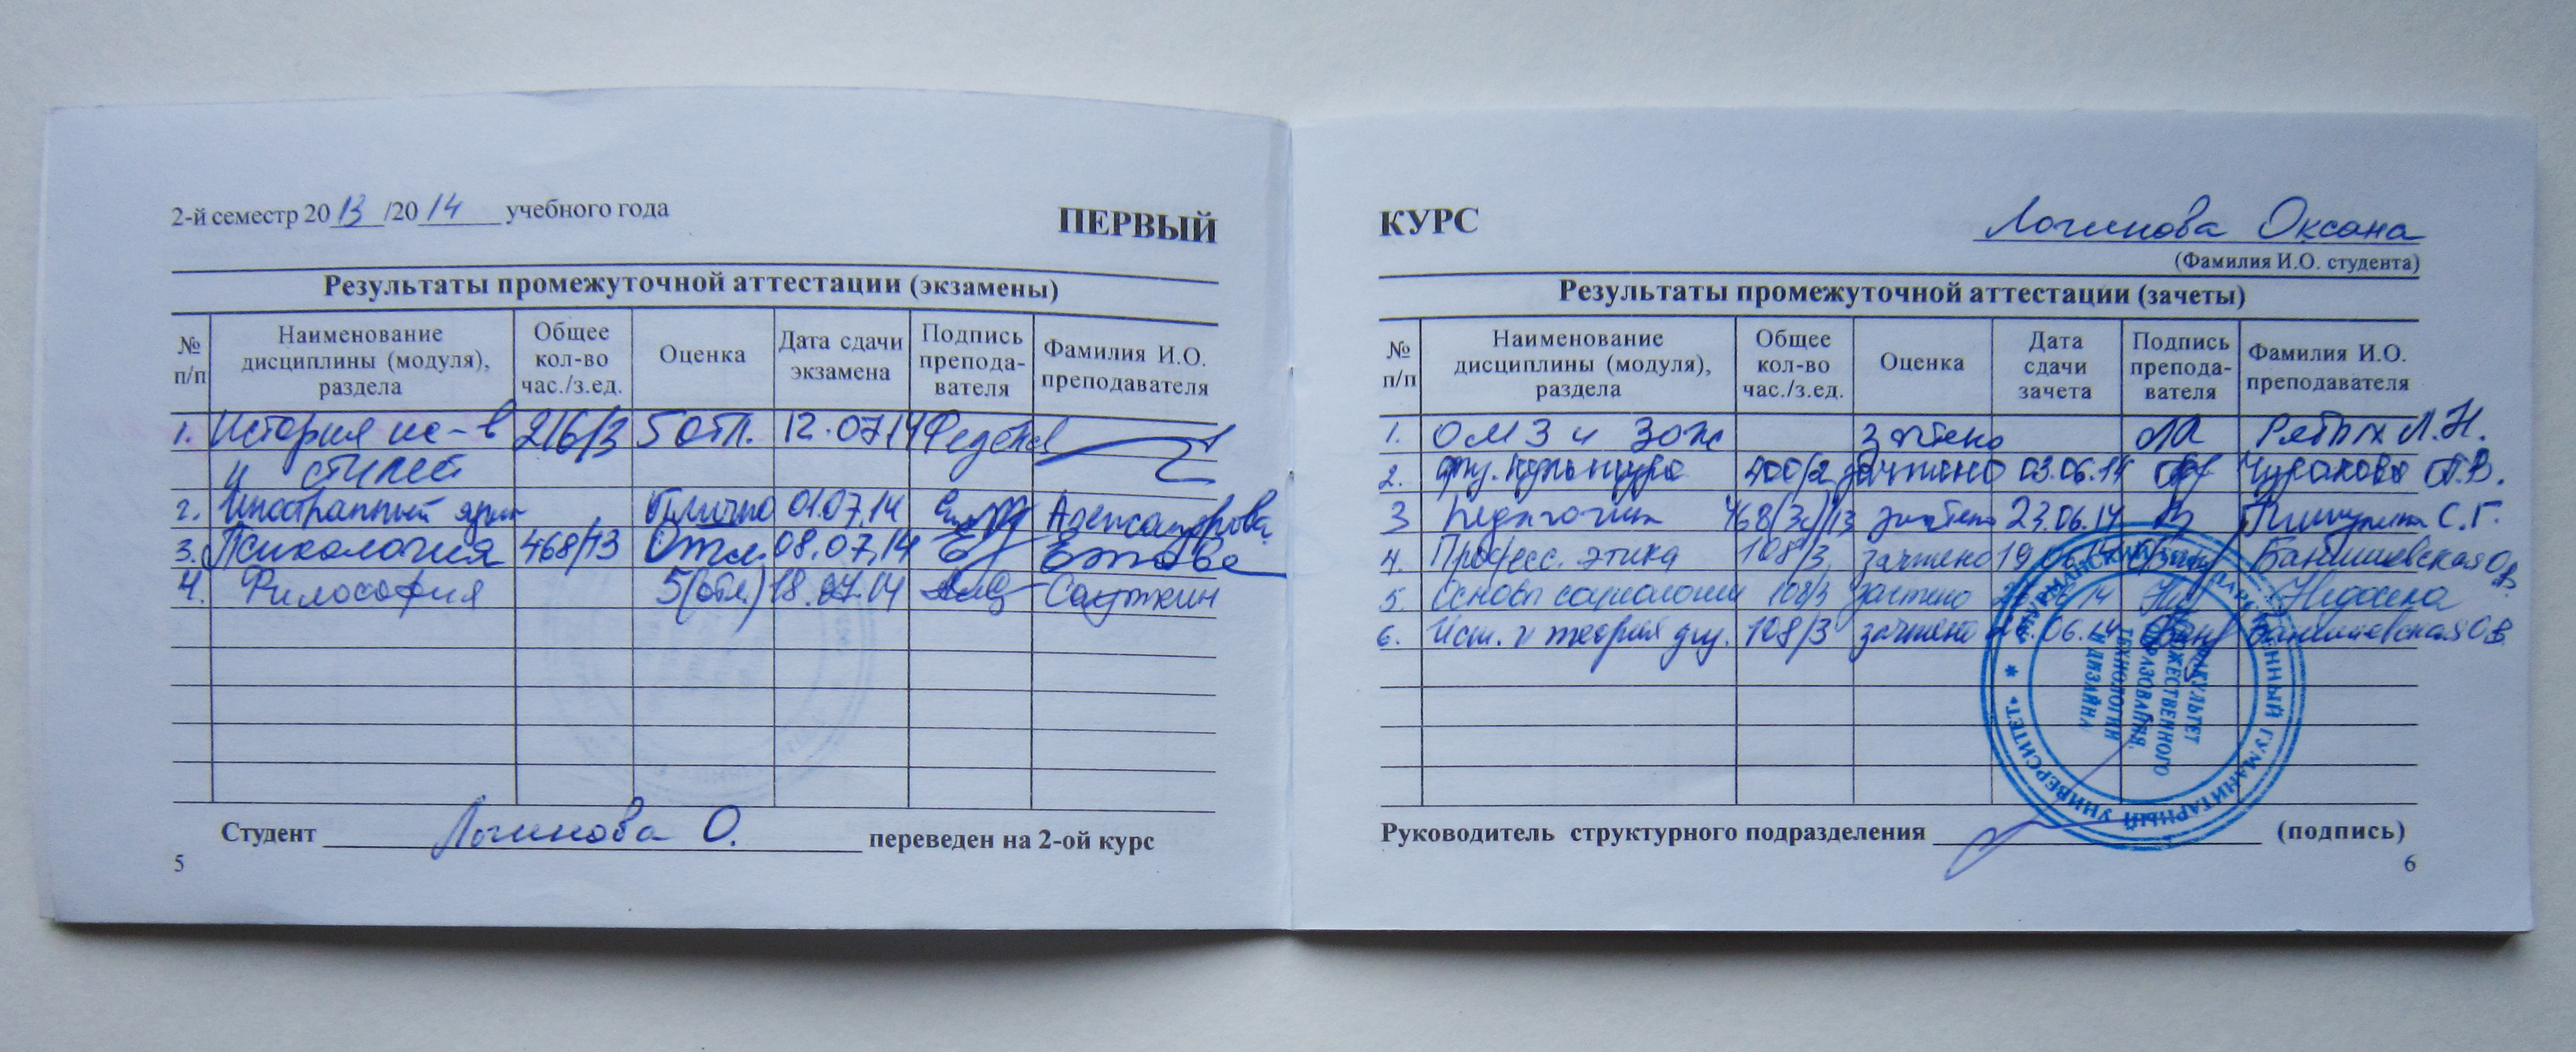 2-й семестр 2013/2014 учебного года
ПЕРВЫЙ
Результаты промежуточной аттестации (экзамены)
№ п/п Наименование дисциплины (модуля), раздела Общее кол-во час./з.ед. Оценка Дата сдачи экзамена Подпись препода-вателя Фамилия И.О. преподавателя
1. История ис-в 216/3 5 отл. 12.07.14
и стилей
2. Иностранный язык Отлично 01.07.14 Александрова
3. Психология 468/13 Отл. 08.07.14
4. Философия 5(отл.) 18.07.14
Студент Логинова О. переведен на 2-ой курс
5
КУРС
Логинова Оксана
(Фамилия И.О. студента)
Результаты промежуточной аттестации (зачеты)
№ п/п Наименование дисциплины (модуля), раздела Общее кол-во час./з.ед. Оценка Дата сдачи зачета Подпись препода-вателя Фамилия И.О. преподавателя
1. ОМЗ и ЗОЖ Зачтено Рябых Л.Н.
2. физ. культура 400/2 зачтено 03.06.14 Чуракова
3 Педагогика 468/13 зачтено 23.06.14 С.Г.
4. Професс. этика 108/3 зачтено 19.06.14
5. Основы социологии 108/3 зачтено 06.14
6. Ист. и теория 108/3 зачтено 06.14
МУРМАНСКИЙ ГОСУДАРСТВЕННЫЙ ГУМАНИТАРНЫЙ УНИВЕРСИТЕТ
ФАКУЛЬТЕТ
ХУДОЖЕСТВЕННОГО
ОБРАЗОВАНИЯ,
ТЕХНОЛОГИИ
И ДИЗАЙНА
Руководитель структурного подразделения (подпись)
6